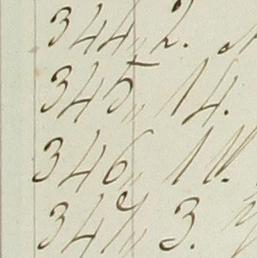 344,, 2.
345,, 14.
346,, 11.
347,, 3.